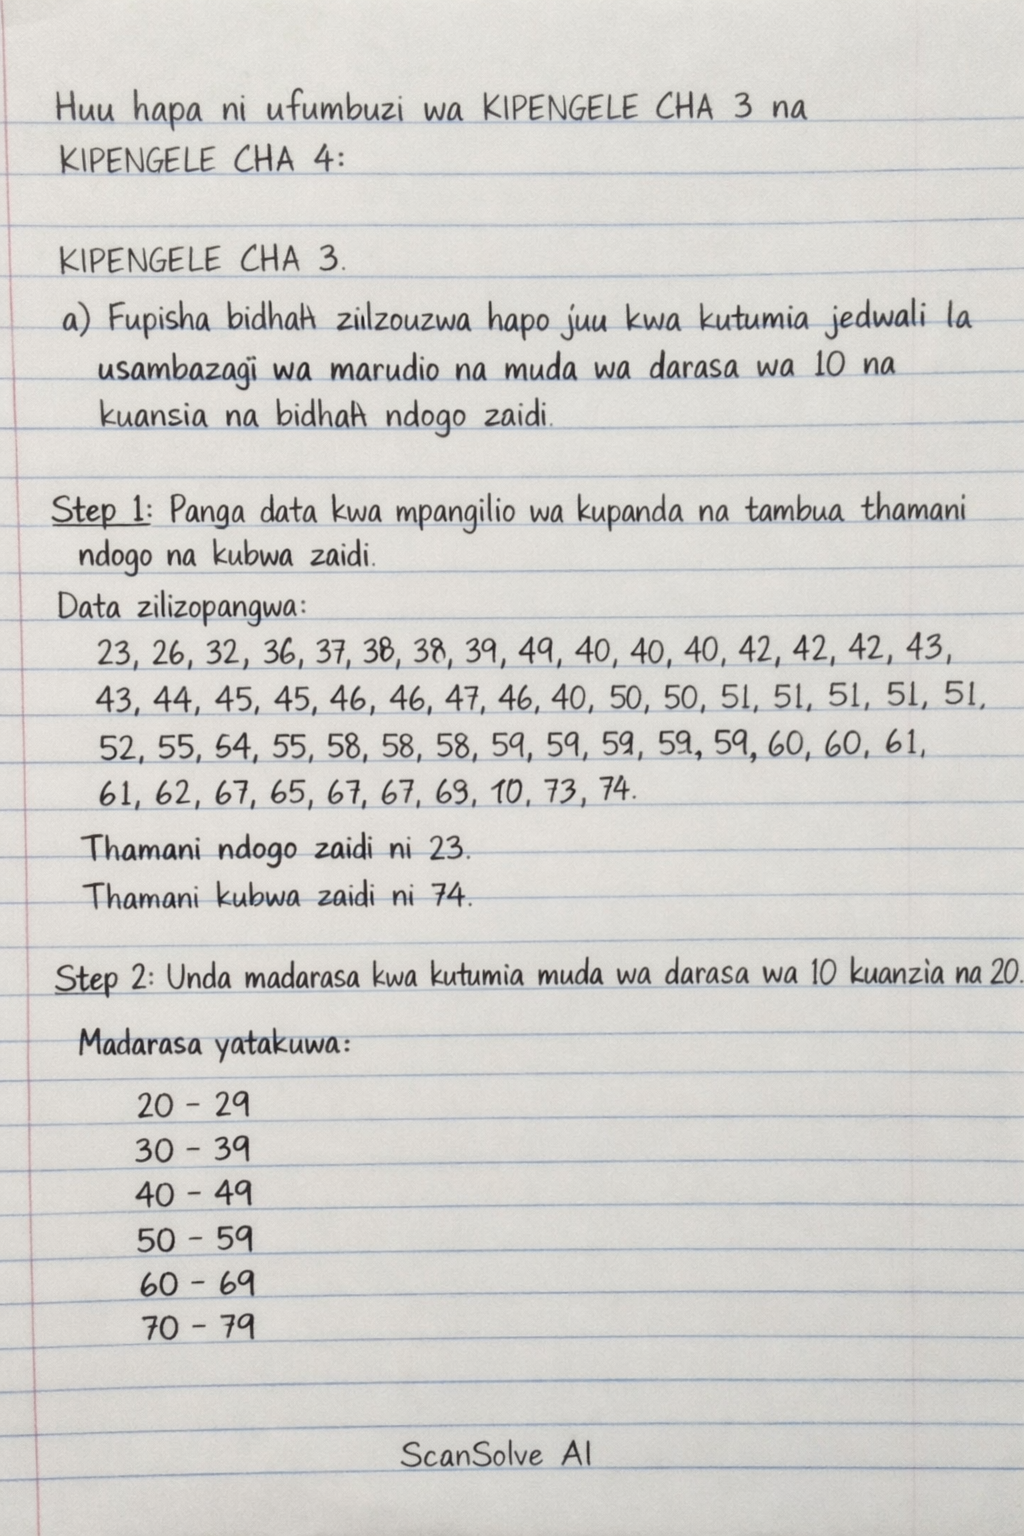 Huu hapa ni ufumbuzi wa KIPENGELE CHA 3 na
KIPENGELE CHA 4:
KIPENGELE CHA 3.
a) Fupisha ziilzouzwa hapo juu kwa kutumia jedwali la
usambazagi wa marudio na muda wa darasa wa 10 na
kuansia na ndogo zaidi.
Step 1: Panga data kwa mpangilio wa kupanda na tambua thamani
ndogo na kubwa zaidi.
Data zilizopangwa:
23, 26, 32, 36, 37, 38, 38, 39, 49, 40, 40, 40, 42, 42, 42, 43,
43, 44, 45, 45, 46, 46, 47, 46, 40, 50, 50, 51, 51, 51, 51, 51,
52, 55, 54, 55, 58, 58, 58, 59, 59, 59, 59, 59, 60, 60, 61,
61, 62, 67, 65, 67, 67, 69, 10, 73, 74.
Thamani ndogo zaidi ni 23.
Thamani kubwa zaidi ni 74.
Step 2: Unda madarasa kwa kutumia muda wa darasa wa 10 kuanzia na 20.
Madarasa yatakuwa:
20 - 29
30 - 39
40 - 49
50 - 59
60 - 69
70 - 79
ScanSolve AI